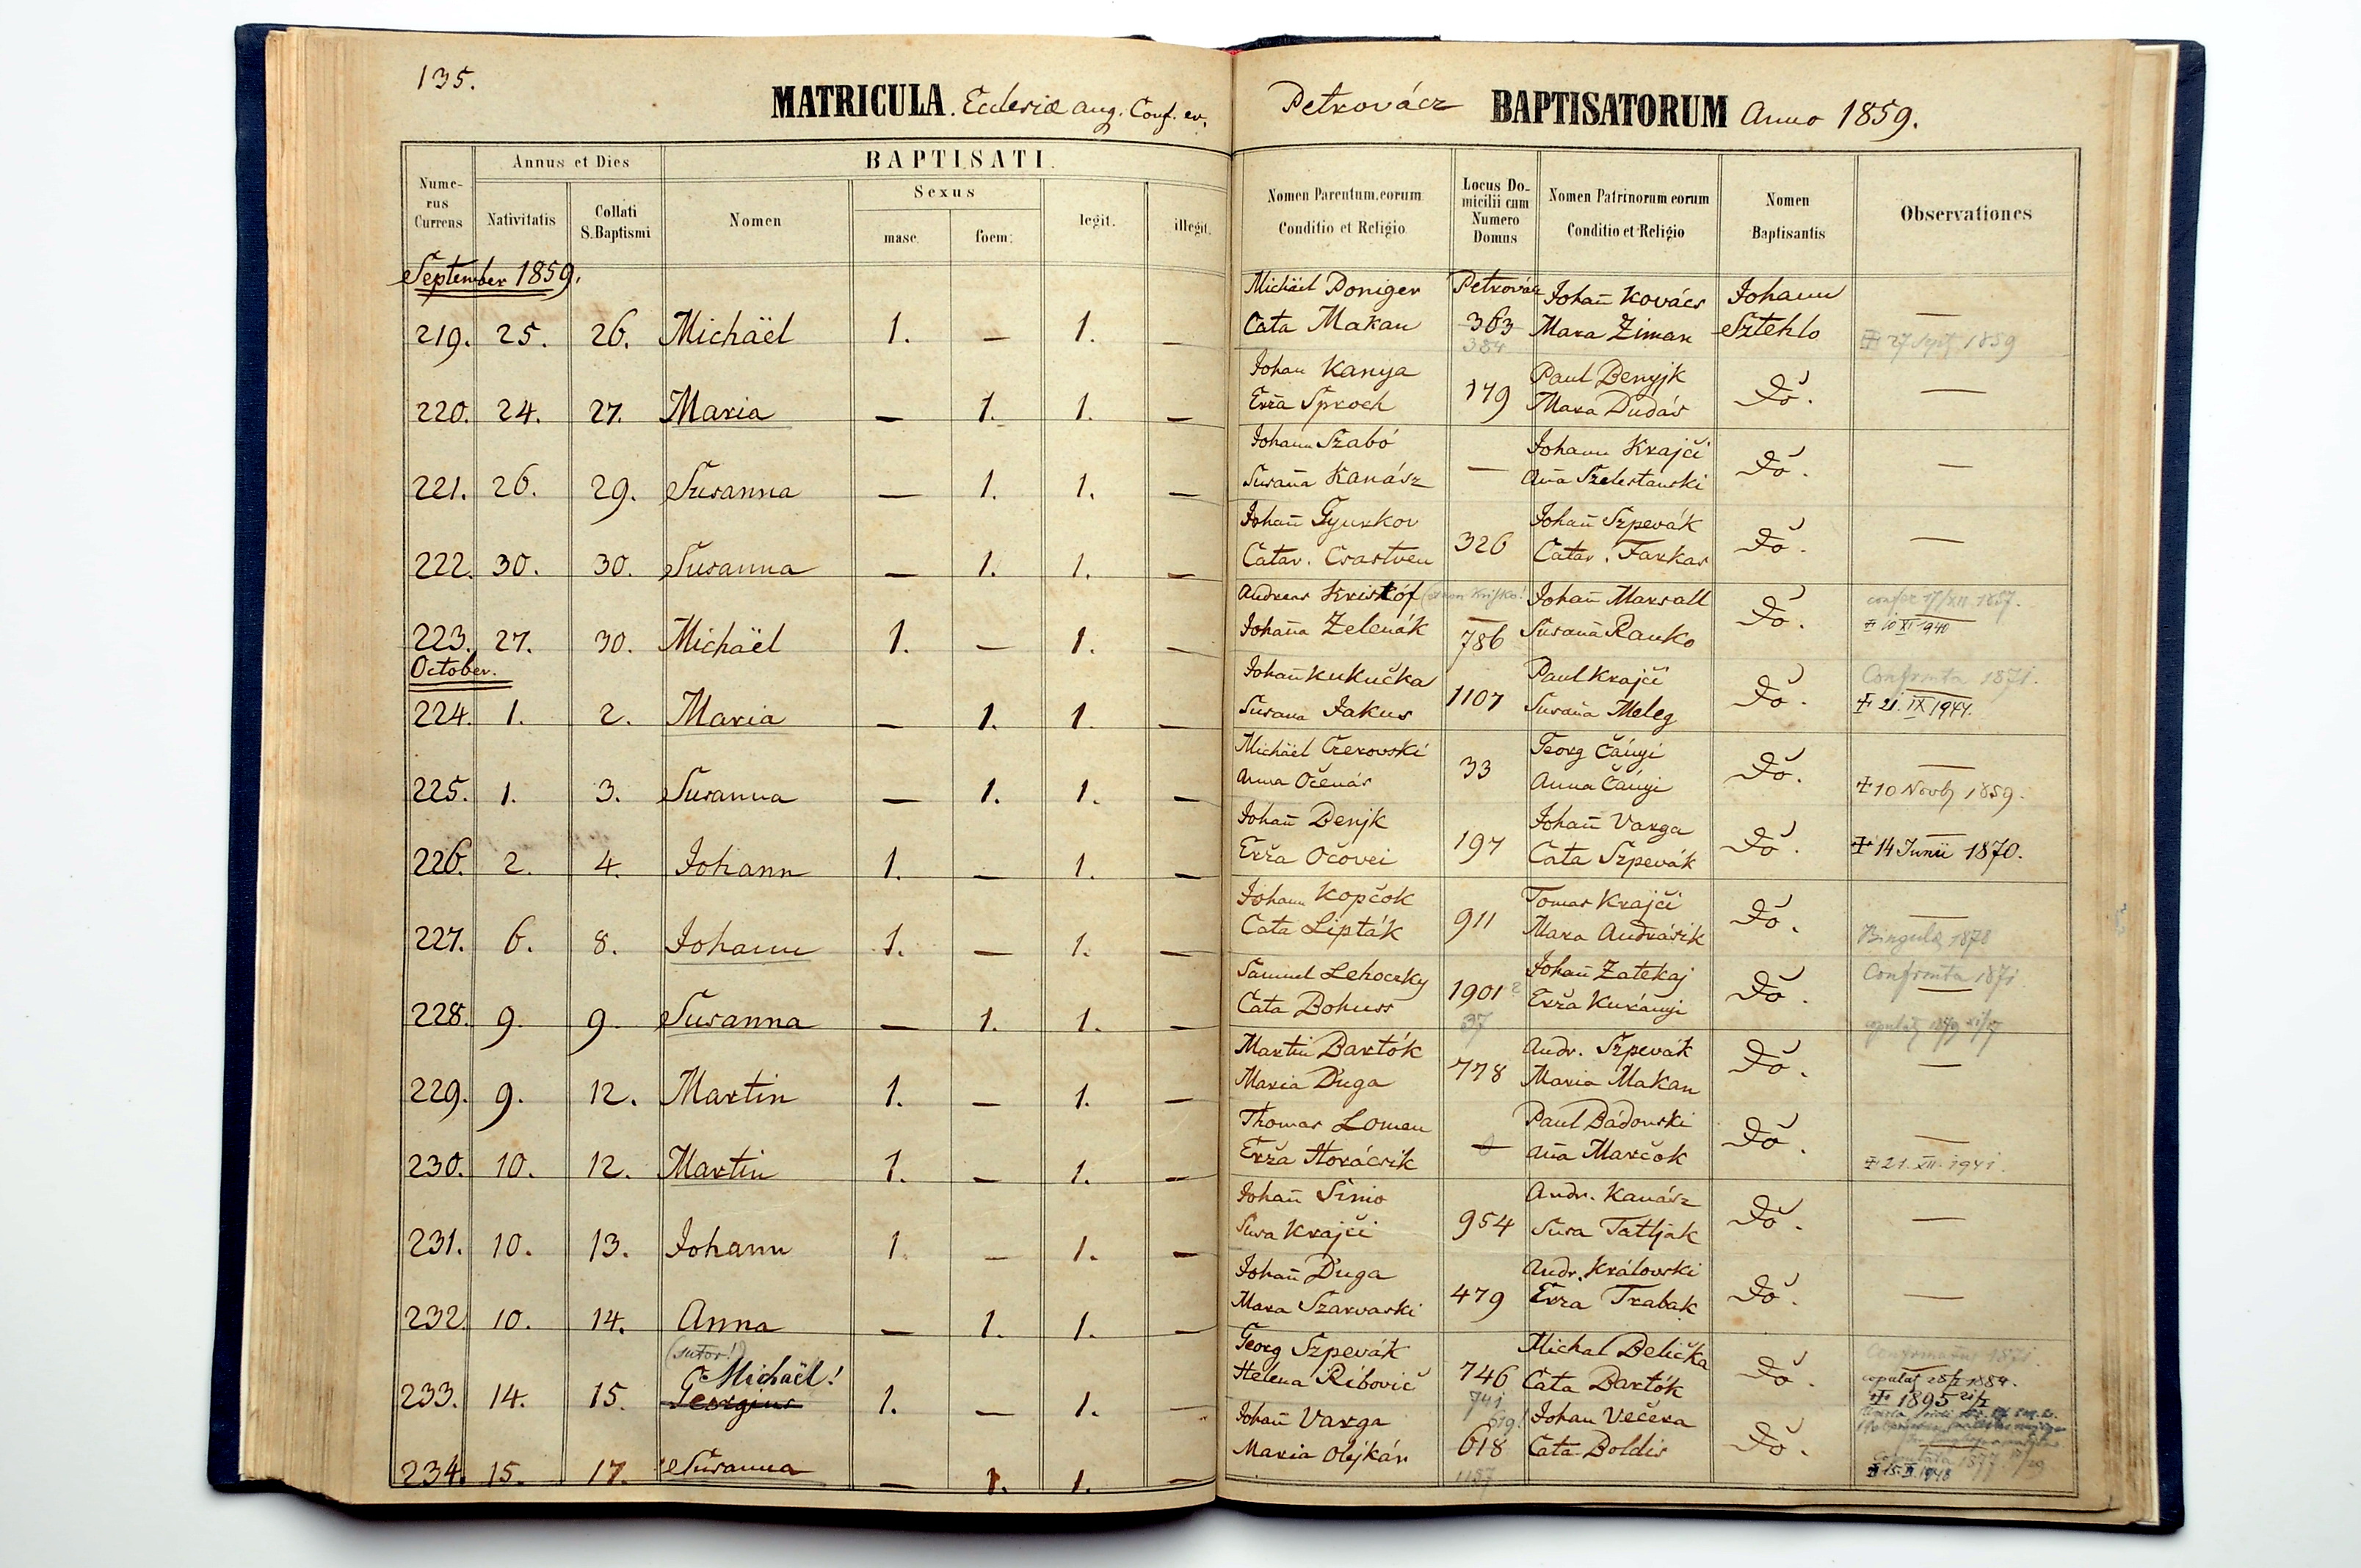 135.
MATRICULA. Ecclesiæ aug. Conf. ev.
Petrovácz BAPTISATORUM Anno 1859.
Numerus Currens
Annus et Dies
Nativitatis
Collati S. Baptismi
BAPTISATI.
Nomen
Sexus
masc.
foem.
legit.
illegit.
Nomen Parentum, eorum Conditio et Religio
Locus Domicilii cum Numero Domus
Nomen Patrinorum eorum Conditio et Religio
Nomen Baptisantis
Observationes
September 1859.
Michäel Poniger Petrovácz Johañ Kovács Johann —
219. 25. 26. Michäel 1. — 1. — Cata Makan 363 Mara Ziman Sztehlo 27 1859
384
Johan Kanya Paul Benyjk
220. 24. 27. Maria — 1. 1. — Erža Sproch 179 Mara Dudás Do. —
Johann Szabó Johann Krajči
221. 26. 29. Susanna — 1. 1. — Susaña Kanász — Aña Szelestanski Do. —
Johañ Gyurkov Johañ Szpevák
222. 30. 30. Susanna — 1. 1. — Catar. Csastven 326 Catar. Farkas Do. —
Andreas Kristóf Johañ Marsall
223. 27. 30. Michäel 1. — 1. — Johaña Zelenák 786 Susaña Ranko Do. 10 XI 1940
October.
Johañ Kukučka Paul Krajči Confirmta 1871.
224. 1. 2. Maria — 1. 1. — Susana Jakus 1107 Susaña Meleg Do. 21. IX 1944.
Michäel Czerovski Georg Čányi —
225. 1. 3. Susanna — 1. 1. — Anna Očenás 33 Anna Čányi Do. 10 Novb 1859.
Johañ Benjk Johañ Varga —
226. 2. 4. Johann 1. — 1. — Erža Očovei 197 Cata Szpevák Do. 14 Junii 1870.
Johann Kopčok Tomas Krajči —
227. 6. 8. Johann 1. — 1. — Cata Lipták 911 Mara Andrásik Do. Bingula 1878
Samuel Lehoczky Johañ Zatekaj Confirmta 1871
228. 9. 9. Susanna — 1. 1. — Cata Bohuss 1901 Erža Kurányi Do. —
37
Martin Bartók Andr. Szpevák
229. 9. 12. Martin 1. — 1. — Maria Ďuga 778 Maria Makan Do. —
Thomas Loman Paul Bádonski —
230. 10. 12. Martin 1. — 1. — Erža Horácsik — Aña Marčok Do. 21. XII. 1941.
Johañ Simo Andr. Kanász
231. 10. 13. Johann 1. — 1. — Susa Krajči 954 Susa Tatljak Do. —
Johañ Ďuga Andr. Královski
232. 10. 14. Anna — 1. 1. — Mara Szarvaski 479 Erža Trabak Do. —
(sutor!)
Michäel! Georg Szpevák Michal Belička
233. 14. 15. Georgius 1. — 1. — Helena Ribovič 746 Cata Bartók Do. 1884.
741 1895
619!
Johañ Varga Johan Večera
234. 15. 17. Susanna — 1. 1. — Maria Olejkár 618 Cata Boldis Do. Copulata 1877
1187 1948